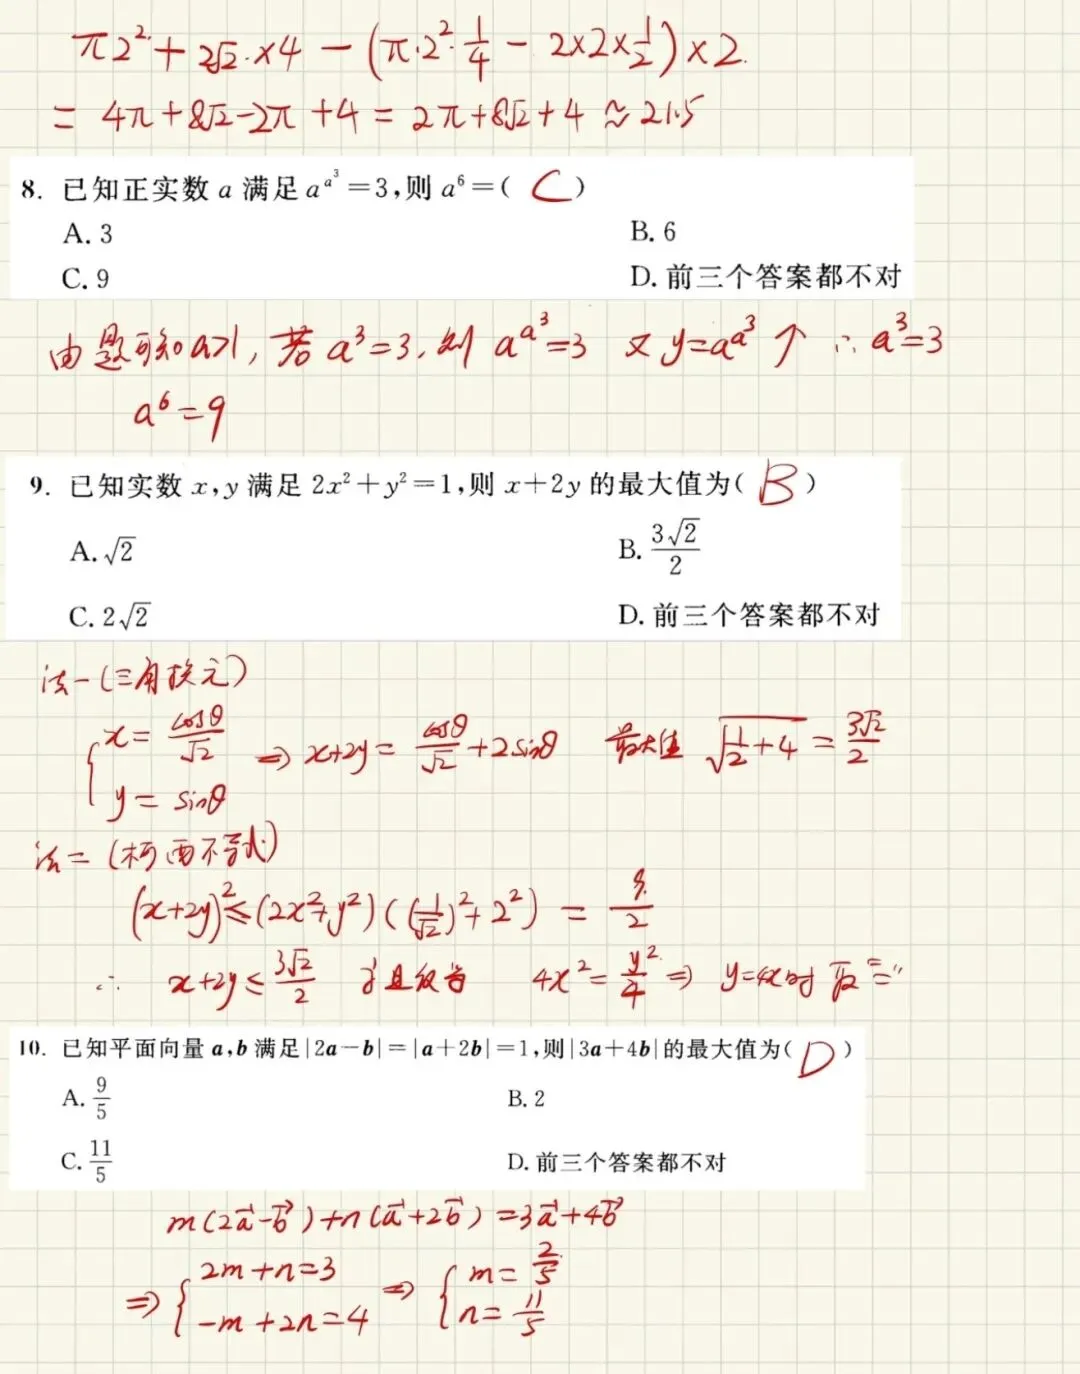 π2²+2√2·×4-(π·2²·1/4-2×2×1/2)×2.
=4π+8√2-2π+4=2π+8√2+4≈21.5
8. 已知正实数 a 满足 a^{a^3}=3,则 a⁶=( C )
A. 3 B. 6
C. 9 D. 前三个答案都不对
由题可知a>1,若a³=3,则 a^{a^3}=3 又 y=a^{a^3}↑ ∴a³=3
a⁶=9
9. 已知实数 x,y 满足 2x²+y²=1,则 x+2y 的最大值为( B )
A. √2 B. 3√2/2
C. 2√2 D. 前三个答案都不对
法一(三角换元)
{x=cosθ/√2 y=sinθ ⇒ x+2y=cosθ/√2+2sinθ 最大值 √(1/2+4)=3√2/2
法二(柯西不等式)
(x+2y)²≤(2x²+y²)((1/√2)²+2²)=9/2
∴ x+2y≤3√2/2 当且仅当 4x²=y²/4⇒ y=4x时取"="
10. 已知平面向量 a,b 满足|2a-b|=|a+2b|=1,则|3a+4b|的最大值为( D )
A. 9/5 B. 2
C. 11/5 D. 前三个答案都不对
m(2a⃗-b⃗)+n(a⃗+2b⃗)=3a⃗+4b⃗
⇒{2m+n=3 -m+2n=4 ⇒{m=2/5 n=11/5